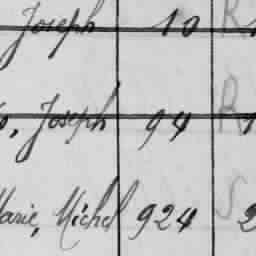 Joseph 10 R
, Joseph 94 R
Marie, Michel 924 S 2